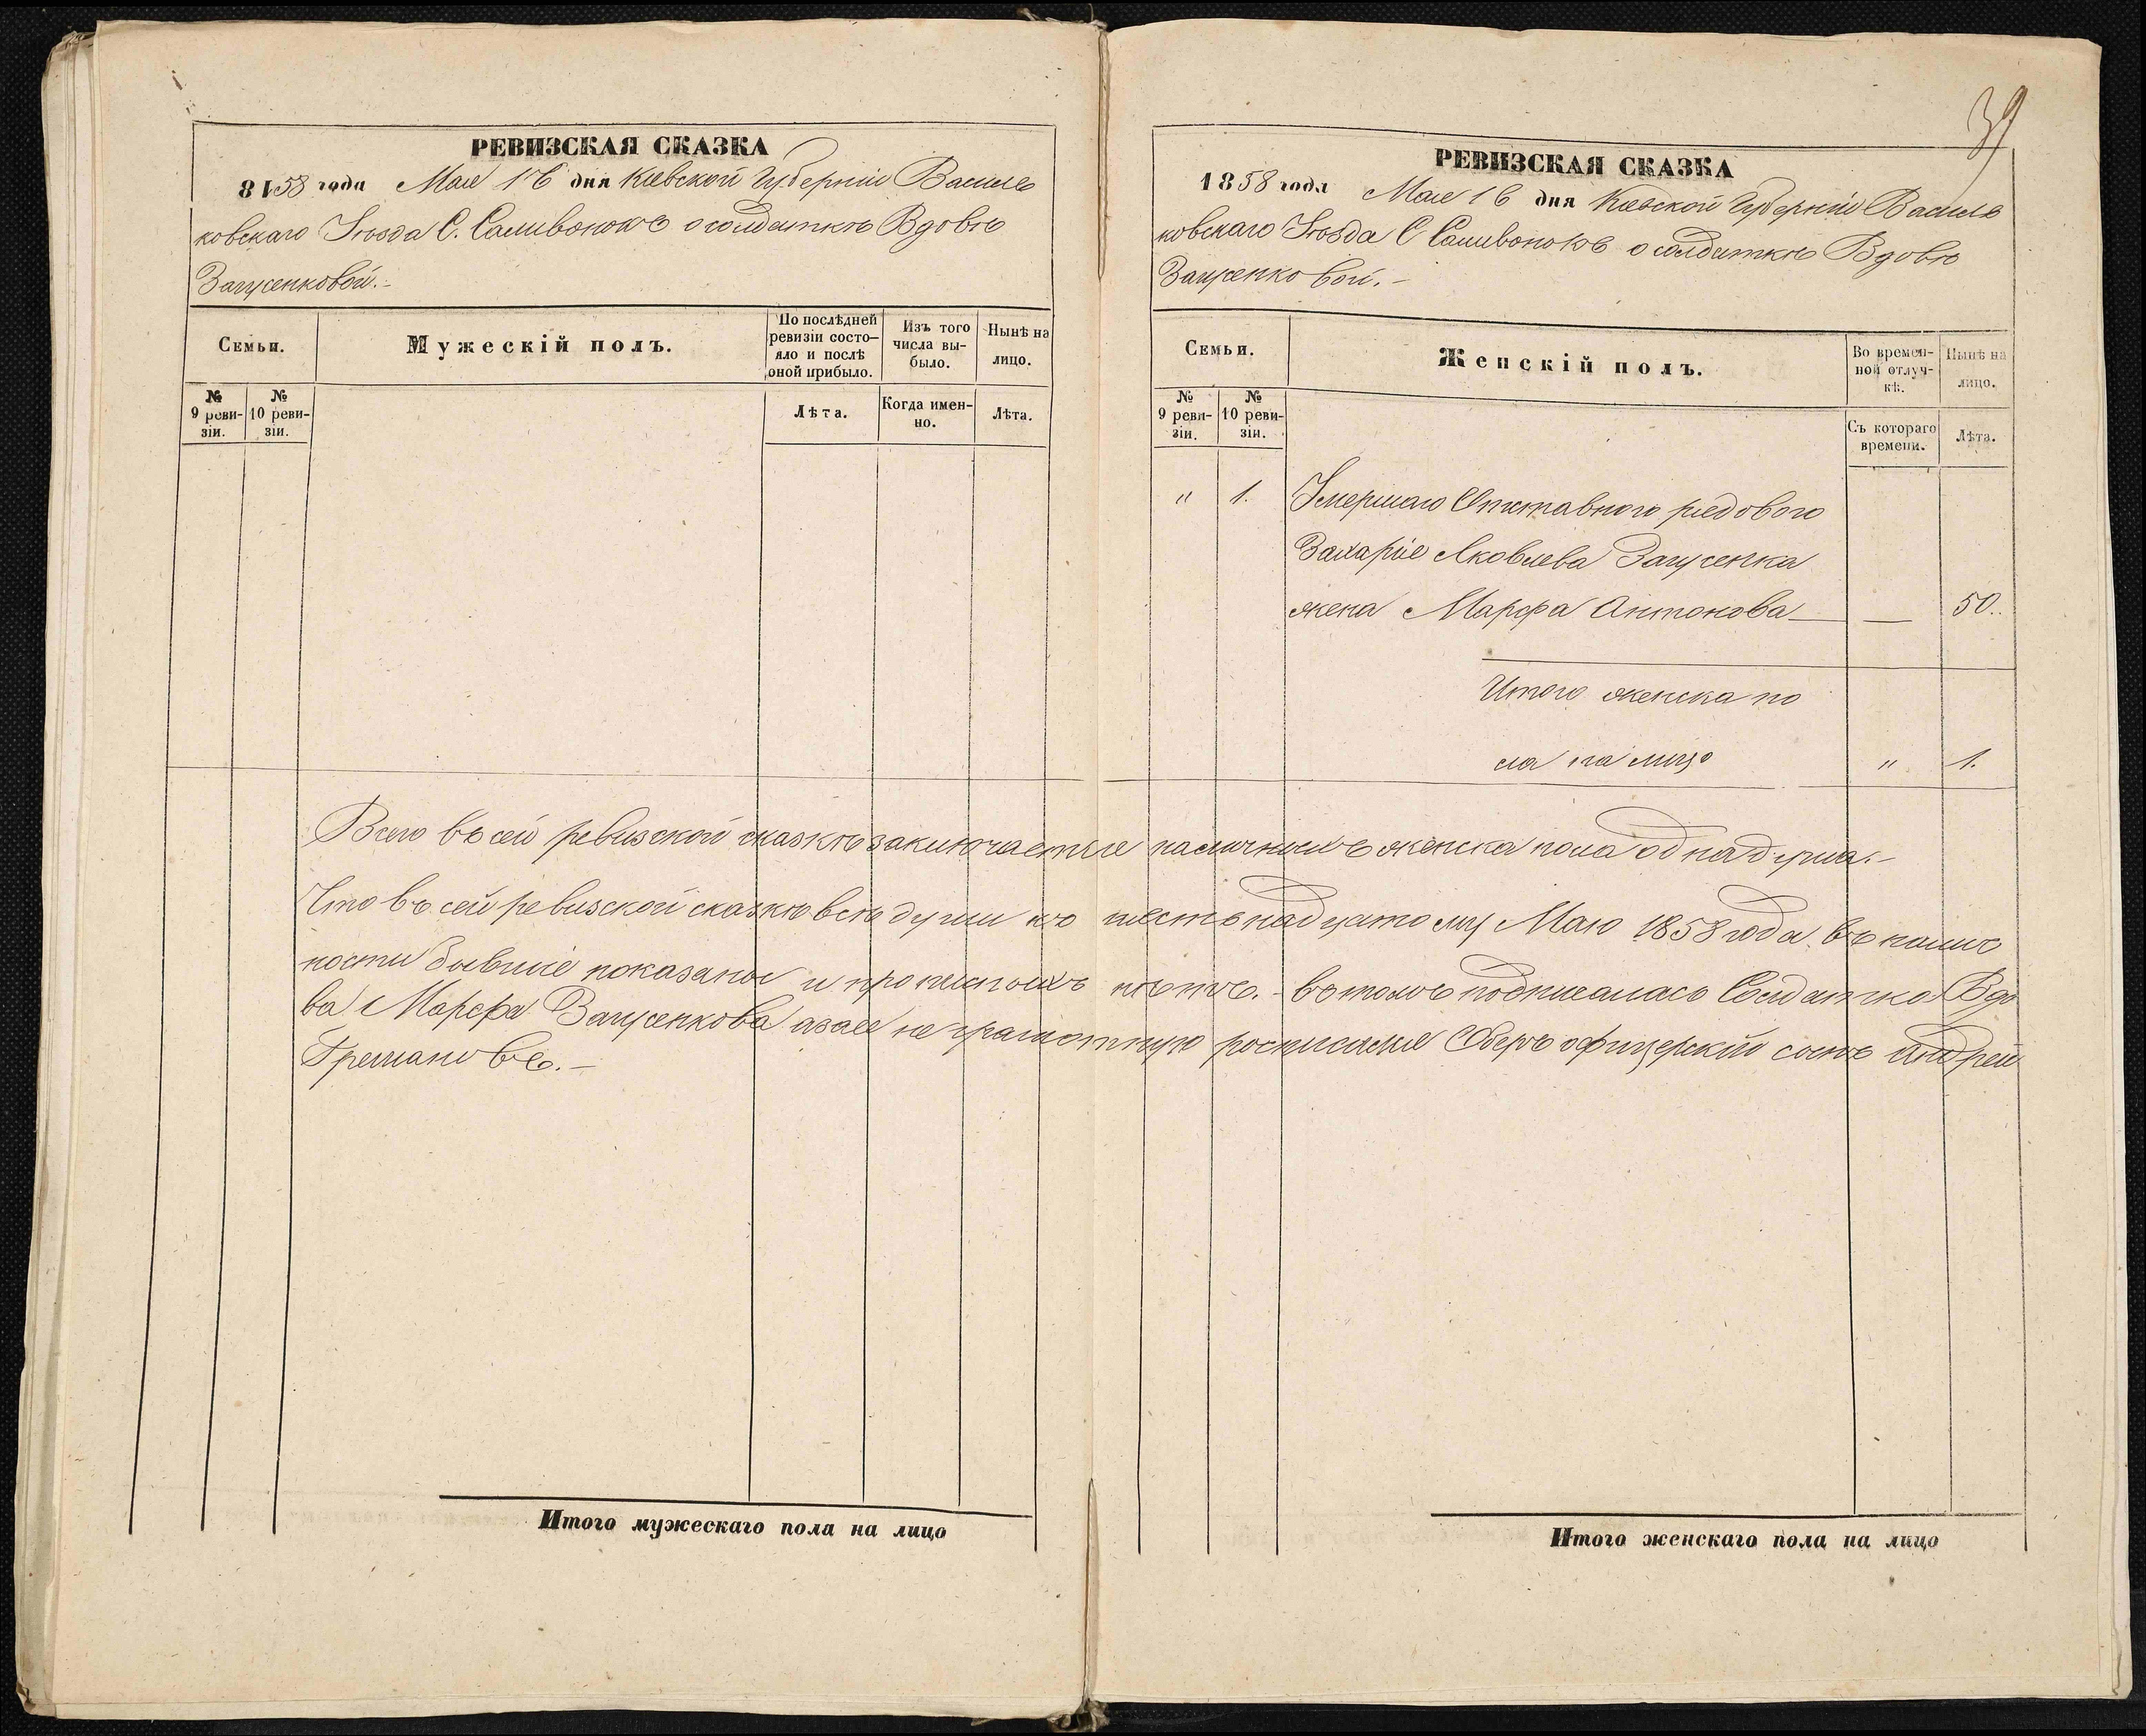 РЕВИЗСКАЯ СКАЗКА
8158 года Мая 16 дня Киевской Губерніи Василь
ковскаго Уѣзда С. Саливонокъ о солдаткѣ Вдовѣ
Загусенковой.-
Семьи.
Мужескій полъ.
По послѣдней ревизіи состо-
яло и послѣ оной прибыло.
Изъ того числа вы-
было.
Нынѣ на лицо.
№ 9 реви-
зіи.
№ 10 реви-
зіи.
Лѣта.
Когда имен-
но.
Лѣта.
39
РЕВИЗСКАЯ СКАЗКА
1858 года Мая 16 дня Киевской Губерніи Василь
ковскаго Уѣзда С Саливонокъ о солдаткѣ Вдовѣ
Загусенковой.-
Семьи.
Женскій полъ.
Во времен-
ной отлуч-
кѣ.
Нынѣ на лицо.
№ 9 реви-
зіи.
№ 10 реви-
зіи.
Съ котораго времени.
Лѣта.
" 1. Умершаго Отставного рядового
Захарія Яковлева Загусенка
жена Марфа Антонова — 50.
Итого женска по
ла на лицо " 1.
Всего въ сей ревизской сказкѣ заключается наличныхъ женска пола одна душа.-
Что въ сей ревизской сказкѣ всѣ души къ шестьнадцатому Маю 1858 года въ налич
ности бывшіе показаны и прописныхъ нѣтъ.- въ томъ подписалась Солдатка Вдо
ва Марфа Загусенкова а за ее неграмотную росписался Оберъ офицерскій сынъ Андрей
Итого мужескаго пола на лицо
Итого женскаго пола на лицо